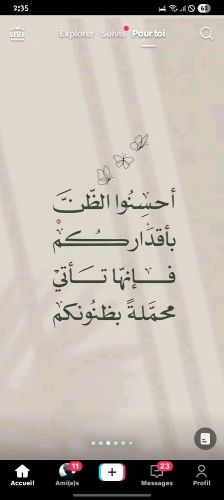 2:35
62
LIVE
Explorer Suivis Pour toi
أحسِنُوا الظّنَّ
بأقدَاركُم
فإنهّا تأتيْ
محمَّلةً بظنُونكم
11
23
Accueil Ami(e)s Messages Profil